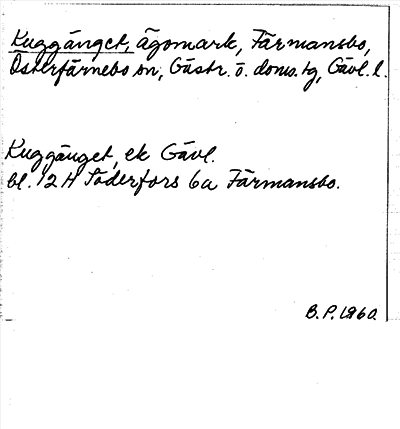 Kuggänget, ägomark, Färmansbo,
Österfärnebo sn, Gästr. ö. doms. tg, Gävl. l.
Kuggänget, ek Gävl.
bl. 12 H Söderfors 6a Färmansbo.
B.P. 1960.